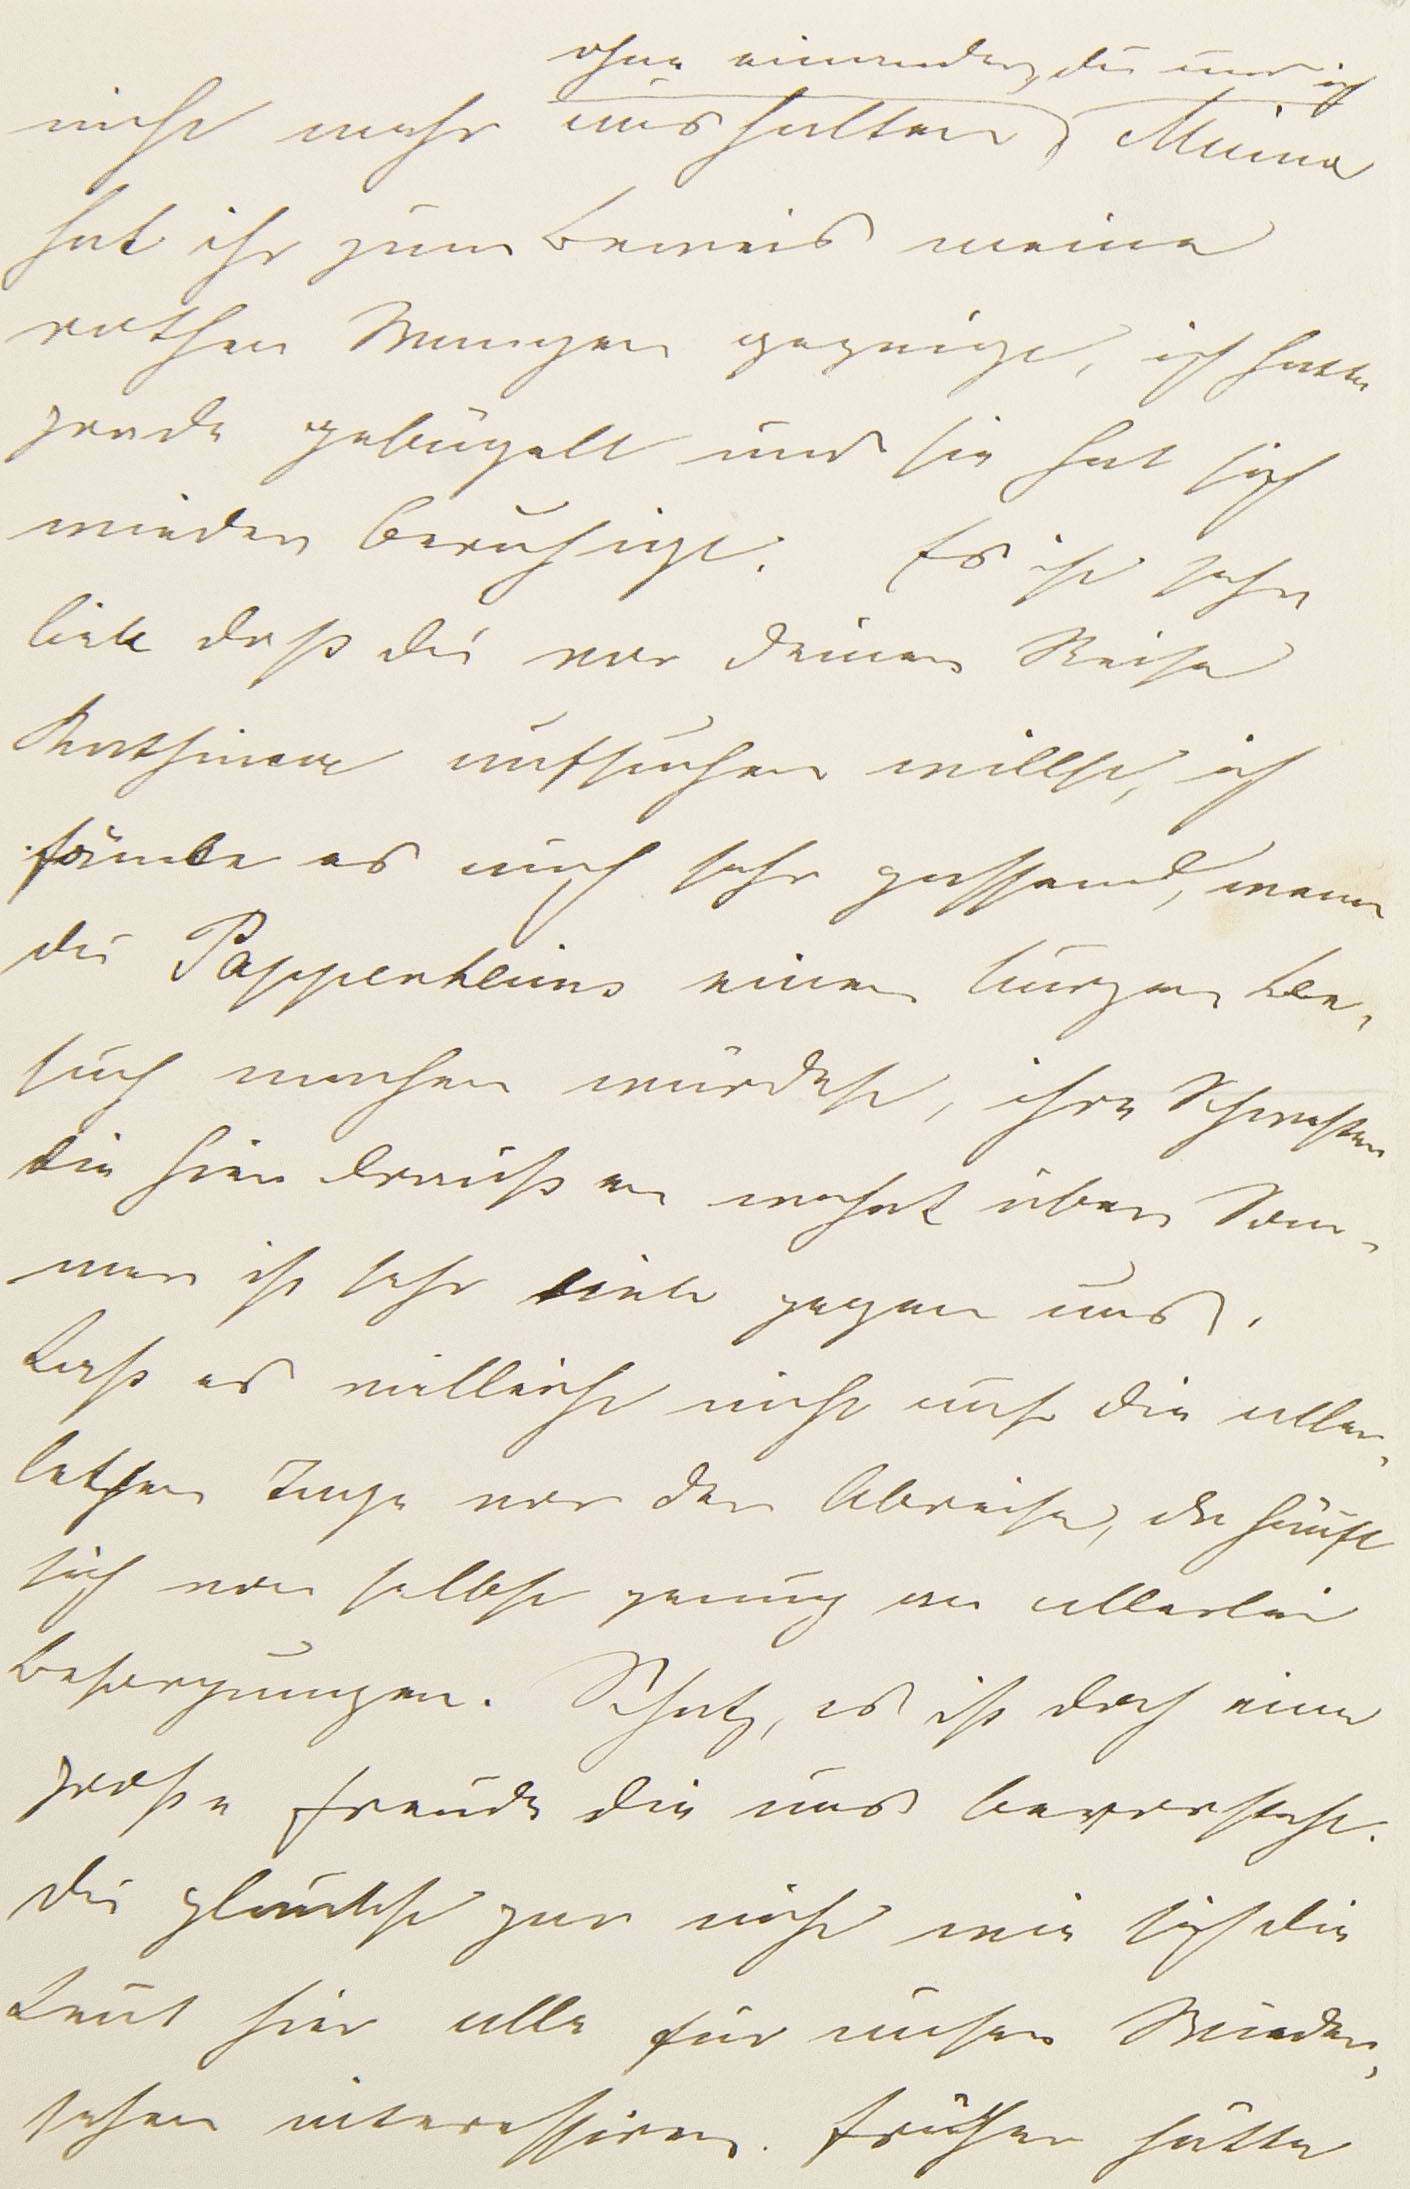 ohne einander, du und ich
nicht mehr aushalten, Minna
hat ihr zum Beweis meine
rothen Wangen gezeigt, ich hatte
grade gebügelt und sie hat sich
wieder beruhigt. Es ist sehr
lieb daß du vor deiner Reise
aufsuchen willst, ich
fände es auch sehr passend, wenn
du Pappenheims einen kurzen Be-
such machen würdest, ihre Schwester
die hier draußen wohnt über Som-
mer ist sehr lieb gegen uns.
Laß es vielleicht nicht auf die aller-
letzten Tage vor der Abreise, da häuft
sich von selbst genug an allerlei
Besorgungen. Schatz, es ist doch eine
große Freude die uns bevorsteht.
Du glaubst gar nicht wie sich die
Leut hier alle für unser Wieder-
sehen interessiren. Früher hätte